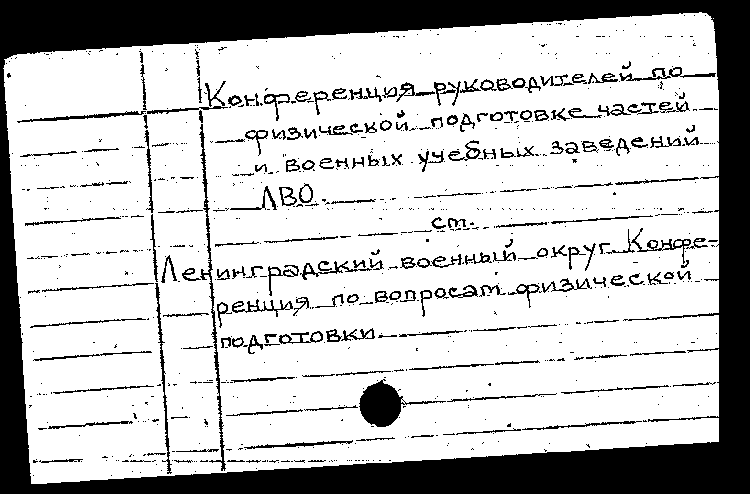 Конференция руководителей по
физической подготовке частей
и военных учебных заведений
ЛВО.
ст.
Ленинградский военный округ. Конфе-
ренция по вопросам физической
подготовки.